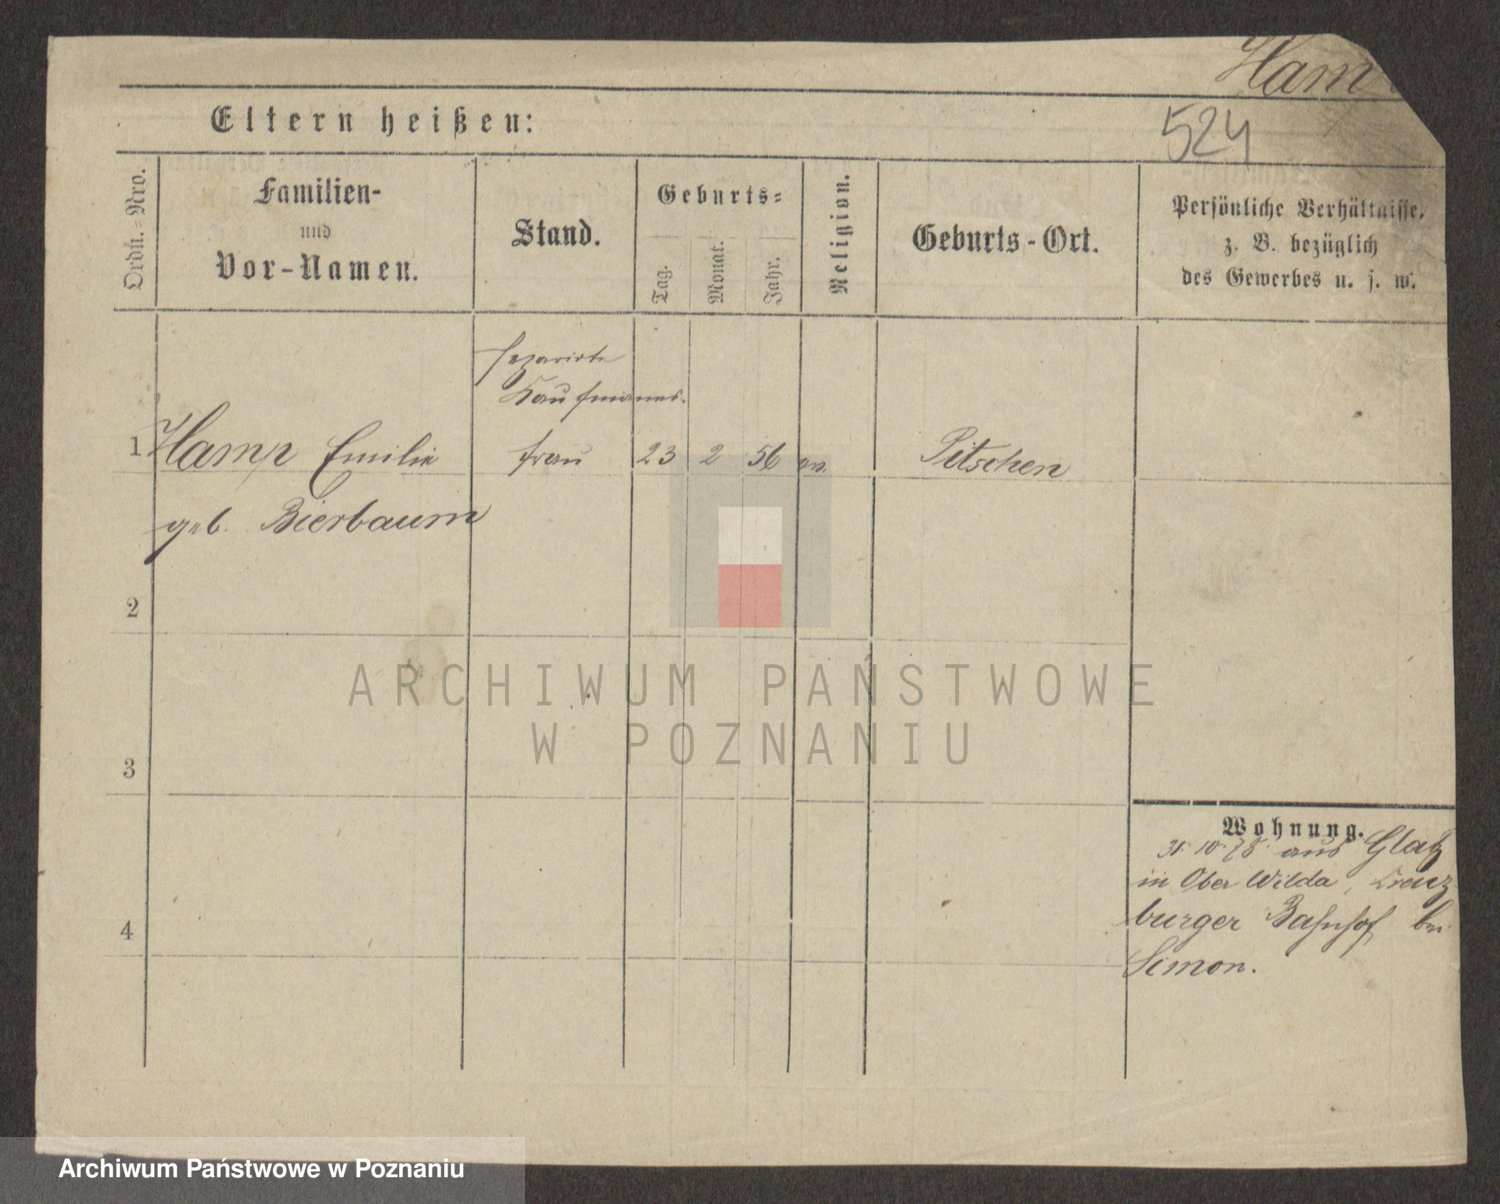 Hamp
524
Eltern heißen:
Ordn.-Nro.
Familien-
und
Vor-Namen.
Stand.
Geburts-
Tag.
Monat.
Jahr.
Religion.
Geburts-Ort.
Persönliche Verhältnisse,
z. B. bezüglich
des Gewerbes u. s. w.
separirte
Kaufmanns-
1 Hamp Emilie frau 23 2 56 ev. Pitschen
geb. Bierbaum
2
3
4
Wohnung.
31. 10. 78. aus Glatz
in Ober Wilda, Kreuz
burger Bahnhof bei
Simon.
ARCHIWUM PAŃSTWOWE
W POZNANIU
Archiwum Państwowe w Poznaniu